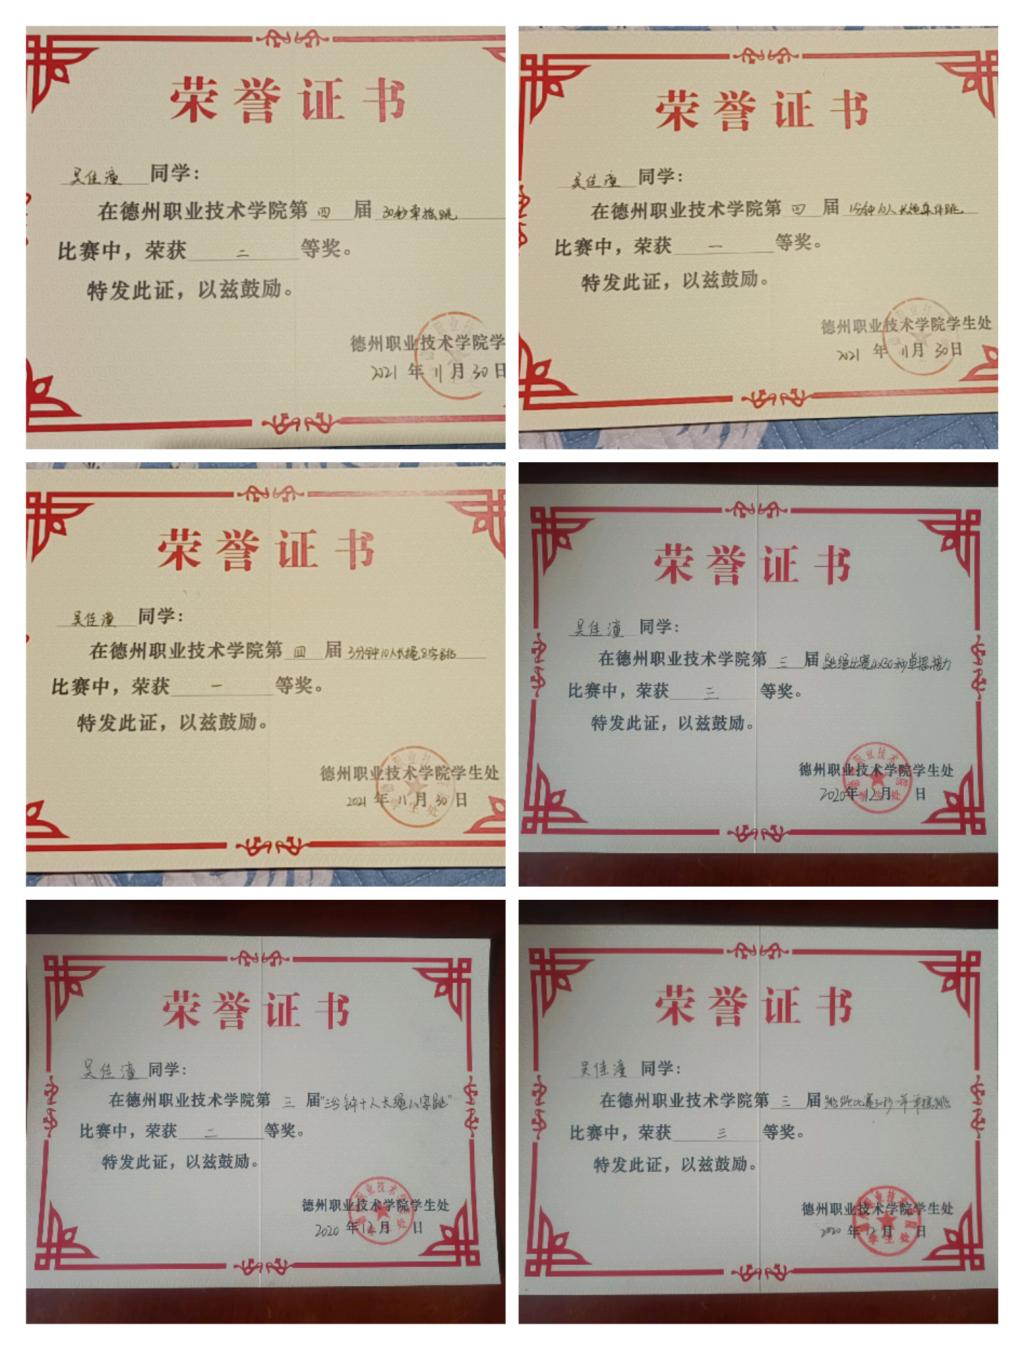 荣誉证书
吴佳潼 同学：
在德州职业技术学院第 四 届 30秒单摇跳
比赛中，荣获 二 等奖。
特发此证，以兹鼓励。
德州职业技术学院学
2021 年 11 月 30 日
荣誉证书
吴佳潼 同学：
在德州职业技术学院第 四 届 1分钟10人长绳集体跳
比赛中，荣获 一 等奖。
特发此证，以兹鼓励。
德州职业技术学院学生处
2021 年 11 月 30 日
荣誉证书
吴佳潼 同学：
在德州职业技术学院第 四 届 3分钟10人长绳8字跳
比赛中，荣获 一 等奖。
特发此证，以兹鼓励。
德州职业技术学院学生处
2021 年 11 月 30 日
荣誉证书
吴佳潼 同学：
在德州职业技术学院第 三 届 跳绳比赛4x30秒单摇接力
比赛中，荣获 三 等奖。
特发此证，以兹鼓励。
德州职业技术学院学生处
2020 年 12 月 日
荣誉证书
吴佳潼 同学：
在德州职业技术学院第 三 届 "三分钟十人长绳八字跳"
比赛中，荣获 二 等奖。
特发此证，以兹鼓励。
德州职业技术学院学生处
2020 年 12 月 日
荣誉证书
吴佳潼 同学：
在德州职业技术学院第 三 届 跳绳比赛30秒 单摇跳
比赛中，荣获 三 等奖。
特发此证，以兹鼓励。
德州职业技术学院学生处
2020 年 12 月 日